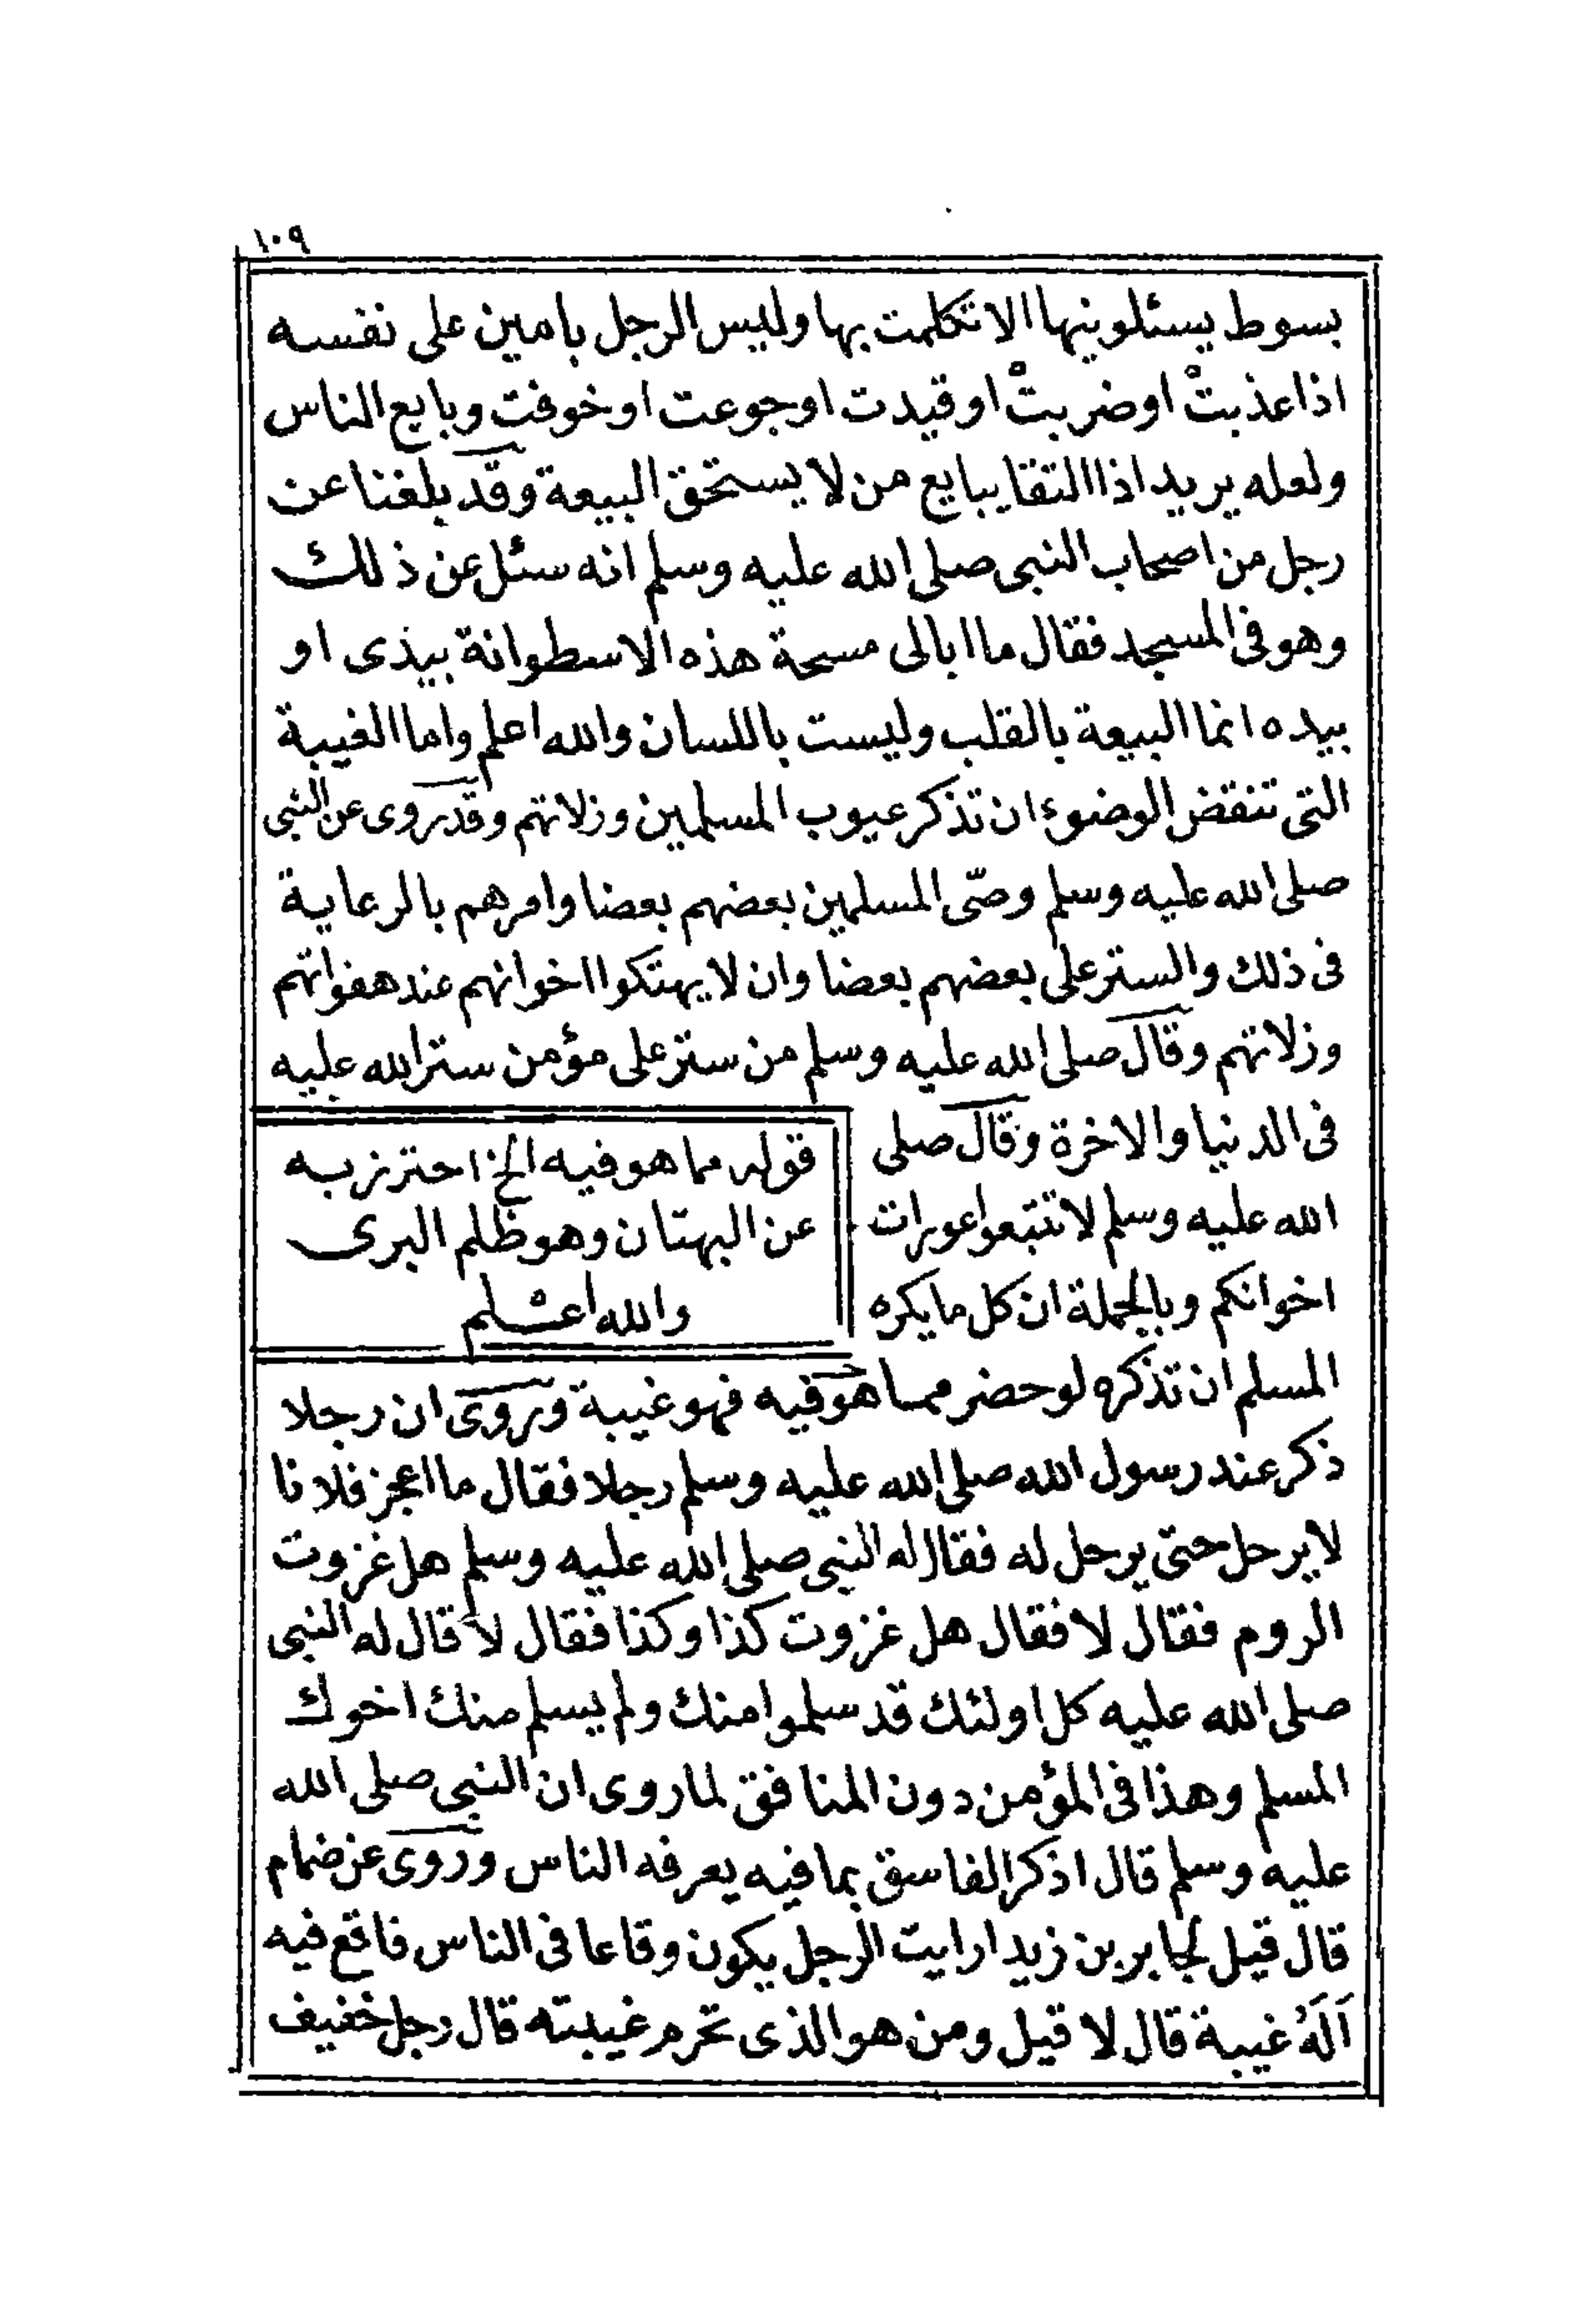 ١٠٩
بسوط يسئلونيها الا تكلمت بها وليس الرجل بامين على نفسه
اذا عذبت او ضربت او قيدت او جوعت او خوفت وبايع الناس
ولعله يريد اذا التقا يبايع من لا يستحق البيعة وقد بلغنا عن
رجل من اصحاب النبى صلى الله عليه وسلم انه سئل عن ذلك
وهو فى المسجد فقال ما ابالى مسحة هذه الاسطوانة بيدى او
بيده انما البيعة بالقلب وليست باللسان والله اعلم واما الغيبة
التى تنقض الوضوء ان تذكر عيوب المسلمين وزلاتهم وقد روى عن النبى
صلى الله عليه وسلم وصّى المسلمين بعضهم بعضا وامرهم بالرعاية
فى ذلك والستر على بعضهم بعضا وان لا يهتكوا اخوانهم عند هفواتهم
وزلاتهم وقال صلى الله عليه وسلم من ستر على مؤمن ستر الله عليه
فى الدنيا والاخرة وقال صلى
الله عليه وسلم لا تتبعوا عورات
اخوانكم وبالجملة ان كل ما يكره
قوله مما هو فيه الخ احترز به
عن البهتان وهو ظلم البرى
والله اعلم
المسلم ان تذكره لو حضر مما هو فيه فهو غيبة وروى ان رجلا
ذكر عند رسول الله صلى الله عليه وسلم رجلا فقال ما اعجز فلانا
لا يرحل حتى يرحل له فقال له النبى صلى الله عليه وسلم هل غزوت
الروم فقال لا فقال هل غزوت كذا وكذا فقال لا قال له النبى
صلى الله عليه كل اولئك قد سلموا منك ولم يسلم منك اخوك
المسلم وهذا فى المؤمن دون المنافق لما روى ان النبى صلى الله
عليه وسلم قال اذكر الفاسق بما فيه يعرفه الناس وروى عن ضمام
قال قيل لجابر بن زيد ارايت الرجل يكون وقاعا فى الناس فاقع فيه
اَلَهُ غيبة قال لا قيل ومن هو الذى تحرم غيبته قال رجل خفيف